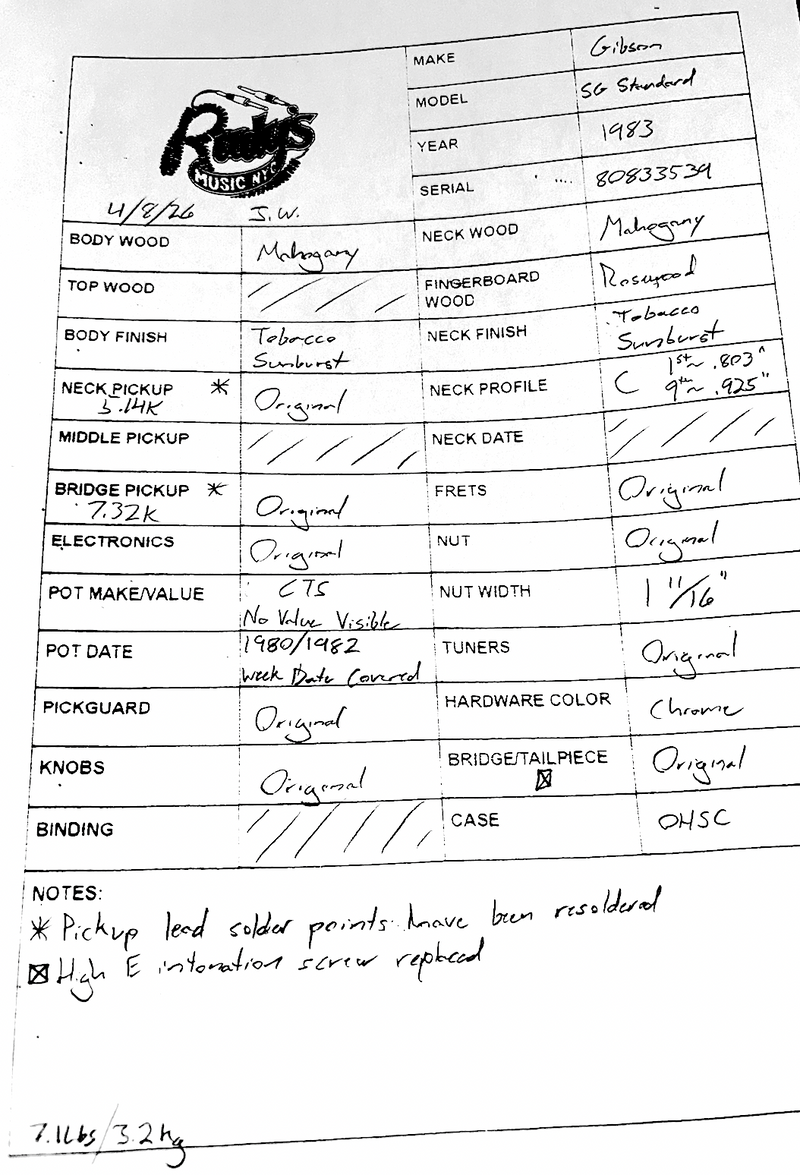 Rudy's
MUSIC NYC
4/8/26 J.W.
MAKE Gibson
MODEL SG Standard
YEAR 1983
SERIAL 80833539
BODY WOOD Mahogany
NECK WOOD Mahogany
TOP WOOD
FINGERBOARD WOOD Rosewood
BODY FINISH Tobacco Sunburst
NECK FINISH Tobacco Sunburst
NECK PICKUP * 5.14K Original
NECK PROFILE C 1st~ .803" 9th~ .925"
MIDDLE PICKUP
NECK DATE
BRIDGE PICKUP * 7.32K Original
FRETS Original
ELECTRONICS Original
NUT Original
POT MAKE/VALUE CTS No Value Visible
NUT WIDTH 1 11/16"
POT DATE 1980/1982 Week Date Covered
TUNERS Original
PICKGUARD Original
HARDWARE COLOR Chrome
KNOBS Original
BRIDGE/TAILPIECE ☒ Original
BINDING
CASE OHSC
NOTES:
* Pickup lead solder points have been resoldered
☒ High E intonation screw replaced
7.1lbs/3.2kg